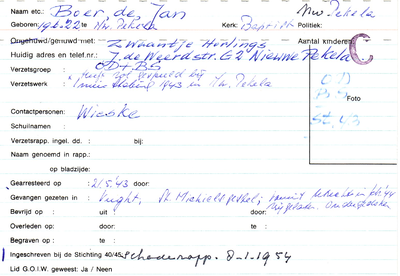 Naam etc.: Boer de, Jan
Nw Pekela
Geboren: 19-6-22 te Nw. Pekela Kerk: Baptist Politiek:
Ongehuwd/gehuwd met: Zwaantje Hovings Aantal kinderen
Huidig adres en telef.nr.: J. de Weerdstr. 62 Nieuwe Pekela
C
Verzetsgroep : OD + BS
Verzetswerk : 1943 in Nw. Pekela
OD
BS
Foto
St. 43
Contactpersonen: Wieske
Schuilnaam :
Verzetsrapp. ingel. dd. : bij:
Naam genoemd in rapp.:
op bladzijde:
Gearresteerd op : 21/5'43 door:
Gevangen gezeten in : Vught, St. Michielsgestel;
Bevrijd op : uit door:
Overleden op: door: te :
Begraven op : te :
Ingeschreven bij de Stichting 40/45: Schaderapp. 8-1-1954
Lid G.O.I.W. geweest: Ja / Neen